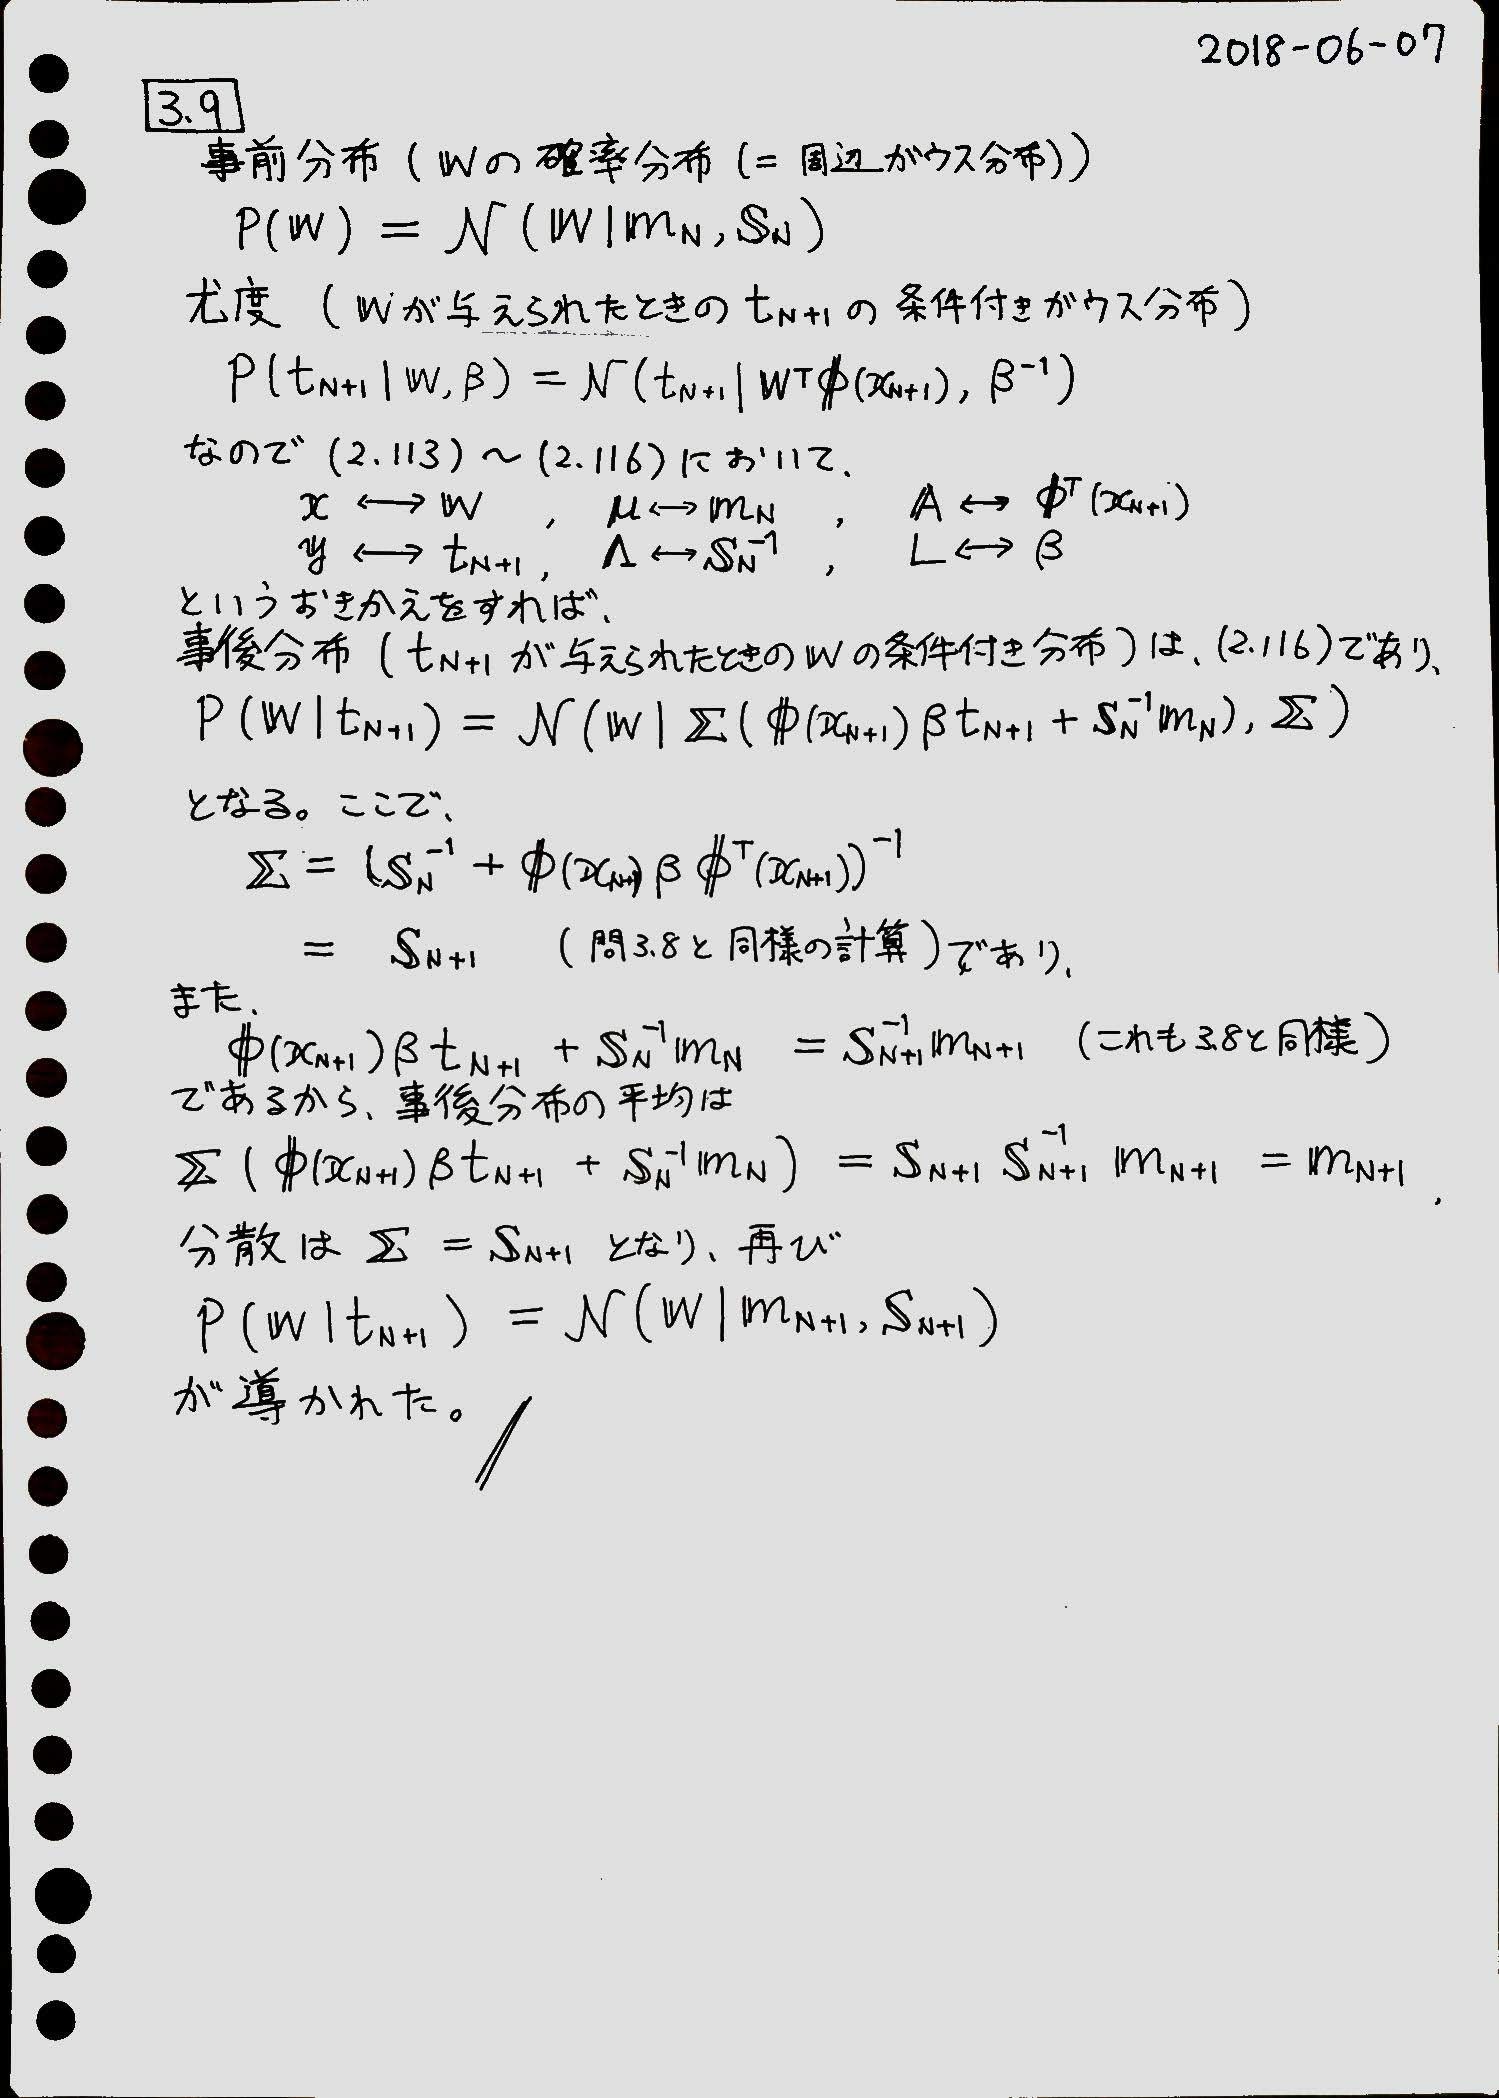 2018-06-07
3.9
事前分布 (Wの確率分布 (= 周辺ガウス分布))
P(W) = N(W|mN, SN)
尤度 (Wが与えられたときの tN+1 の 条件付きガウス分布)
P(tN+1|W, β) = N(tN+1|Wᵀφ(xN+1), β⁻¹)
なので (2.113) ~ (2.116) において、
x ↔ W , μ ↔ mN , A ↔ φᵀ(xN+1)
y ↔ tN+1, Λ ↔ SN⁻¹ , L ↔ β
というおきかえをすれば、
事後分布 (tN+1 が与えられたときのWの条件付き分布) は、(2.116)であり、
P(W|tN+1) = N(W|Σ(φ(xN+1)βtN+1 + SN⁻¹mN), Σ)
となる。ここで、
Σ = (SN⁻¹ + φ(xN+1)βφᵀ(xN+1))⁻¹
= SN+1 (問3.8と同様の計算)であり、
また、
φ(xN+1)βtN+1 + SN⁻¹mN = SN+1⁻¹mN+1 (これも3.8と同様)
であるから、事後分布の平均は
Σ(φ(xN+1)βtN+1 + SN⁻¹mN) = SN+1 SN+1⁻¹ mN+1 = mN+1,
分散は Σ = SN+1 となり、再び
P(W|tN+1) = N(W|mN+1, SN+1)
が導かれた。